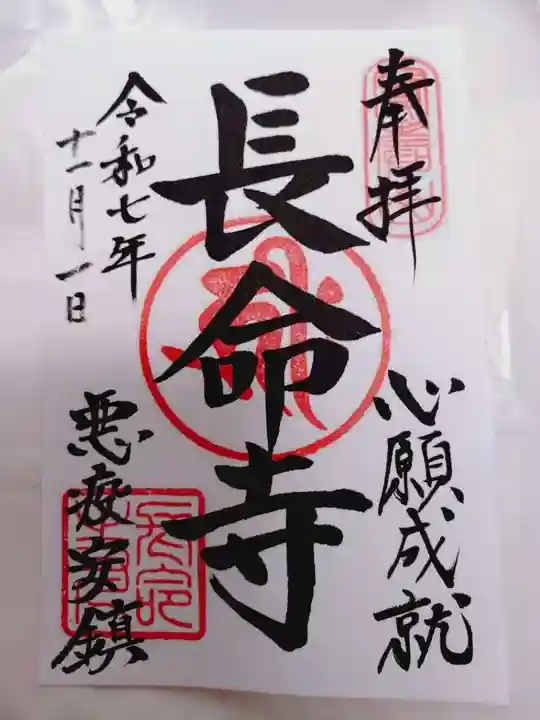 奉拝
心願成就
長命寺
令和七年
十一月一日
悪疫安鎮